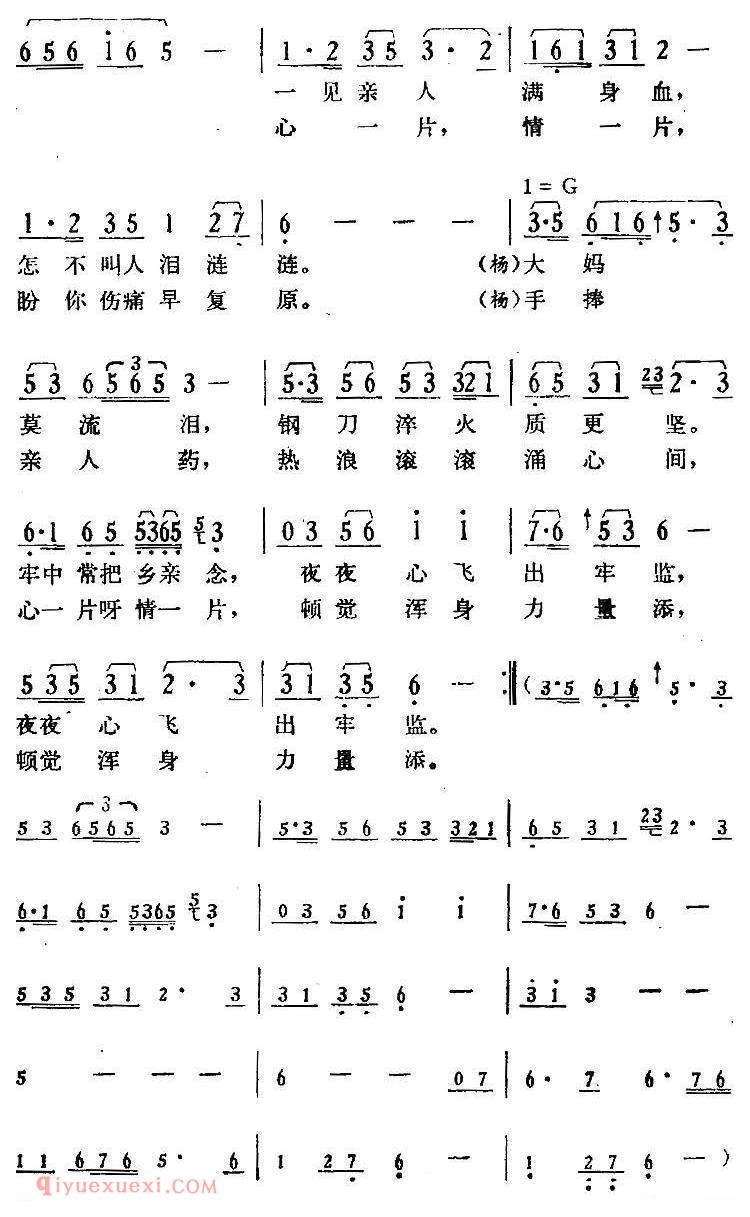 656 i65 — | 1·2 35 3·2 | 161 31 2 —
一见亲人 满身血，
心一片， 情一片，
1=G
1·2 35 1 27 | 6 — — — | 3·5 616 ↑5·3
怎不叫人泪涟涟。 （杨）大妈
盼你伤痛早复原。 （杨）手捧
3
53 6 565 3 — | 5·3 56 53 321 | 65 31 23 2·3
莫流泪， 钢刀淬火 质更坚。
亲人药， 热浪滚滚 涌心间，
6·1 65 5365 5 3 | 03 56 i i | 7·6 ↑53 6 —
牢中常把乡亲念， 夜夜心飞 出牢监，
心一片呀情一片， 顿觉浑身 力量添，
535 31 2·3 | 31 35 6 — :‖ （3·5 616 ↑5·3
夜夜心飞 出牢监。
顿觉浑身 力量添。
3
53 6565 3 — | 5·3 56 53 321 | 65 31 23 2·3
6·1 65 5365 5 3 | 03 56 i i | 7·6 53 6 —
535 31 2·3 | 31 35 6 — | 3i 3 — —
5 — — — | 6 — — 07 | 6· 7 6· 76
11 676 5· 6 | 1 27 6 — | 1 27 6 —）
qiyuexuexi.com